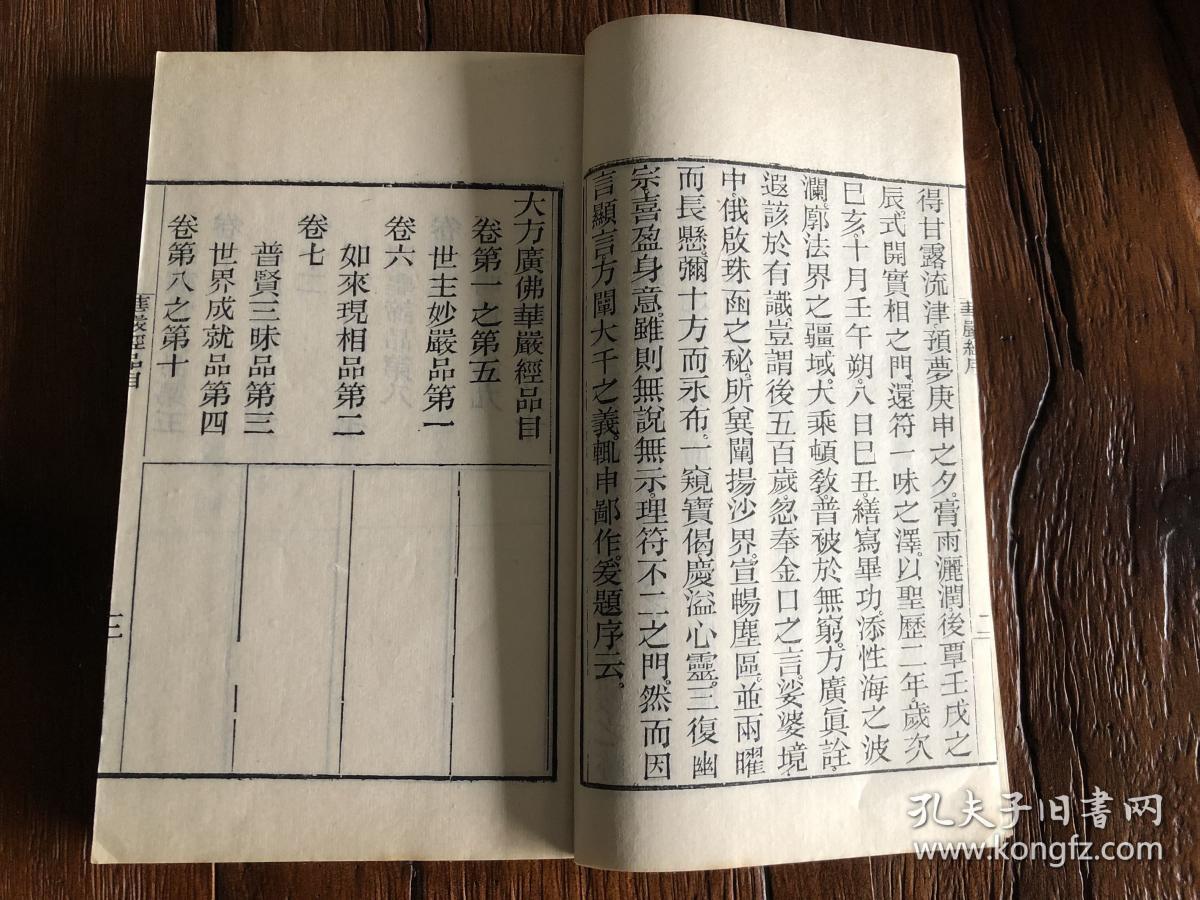 得甘露流津預夢庚申之夕膏雨灑潤後覃壬戌之
辰式開實相之門還符一味之澤以聖歷二年歲次
巳亥十月壬午朔八日巳丑繕寫畢功添性海之波
瀾廓法界之疆域大乘頓教普被於無窮方廣眞詮
遐該於有識豈謂後五百歲忽奉金口之言娑婆境
中俄啟珠函之秘所冀闡揚沙界宣暢塵區並兩曜
而長懸彌十方而永布一窺寶偈慶溢心靈三復幽
宗喜盈身意雖則無說無示理符不二之門然而因
言顯言方闡大千之義輒申鄙作爰題序云
二
大方廣佛華嚴經品目
卷第一之第五
世主妙嚴品第一
卷六
如來現相品第二
卷七
普賢三昧品第三
世界成就品第四
卷第八之第十
華嚴經品目
三
孔夫子旧书网
www.kongfz.com